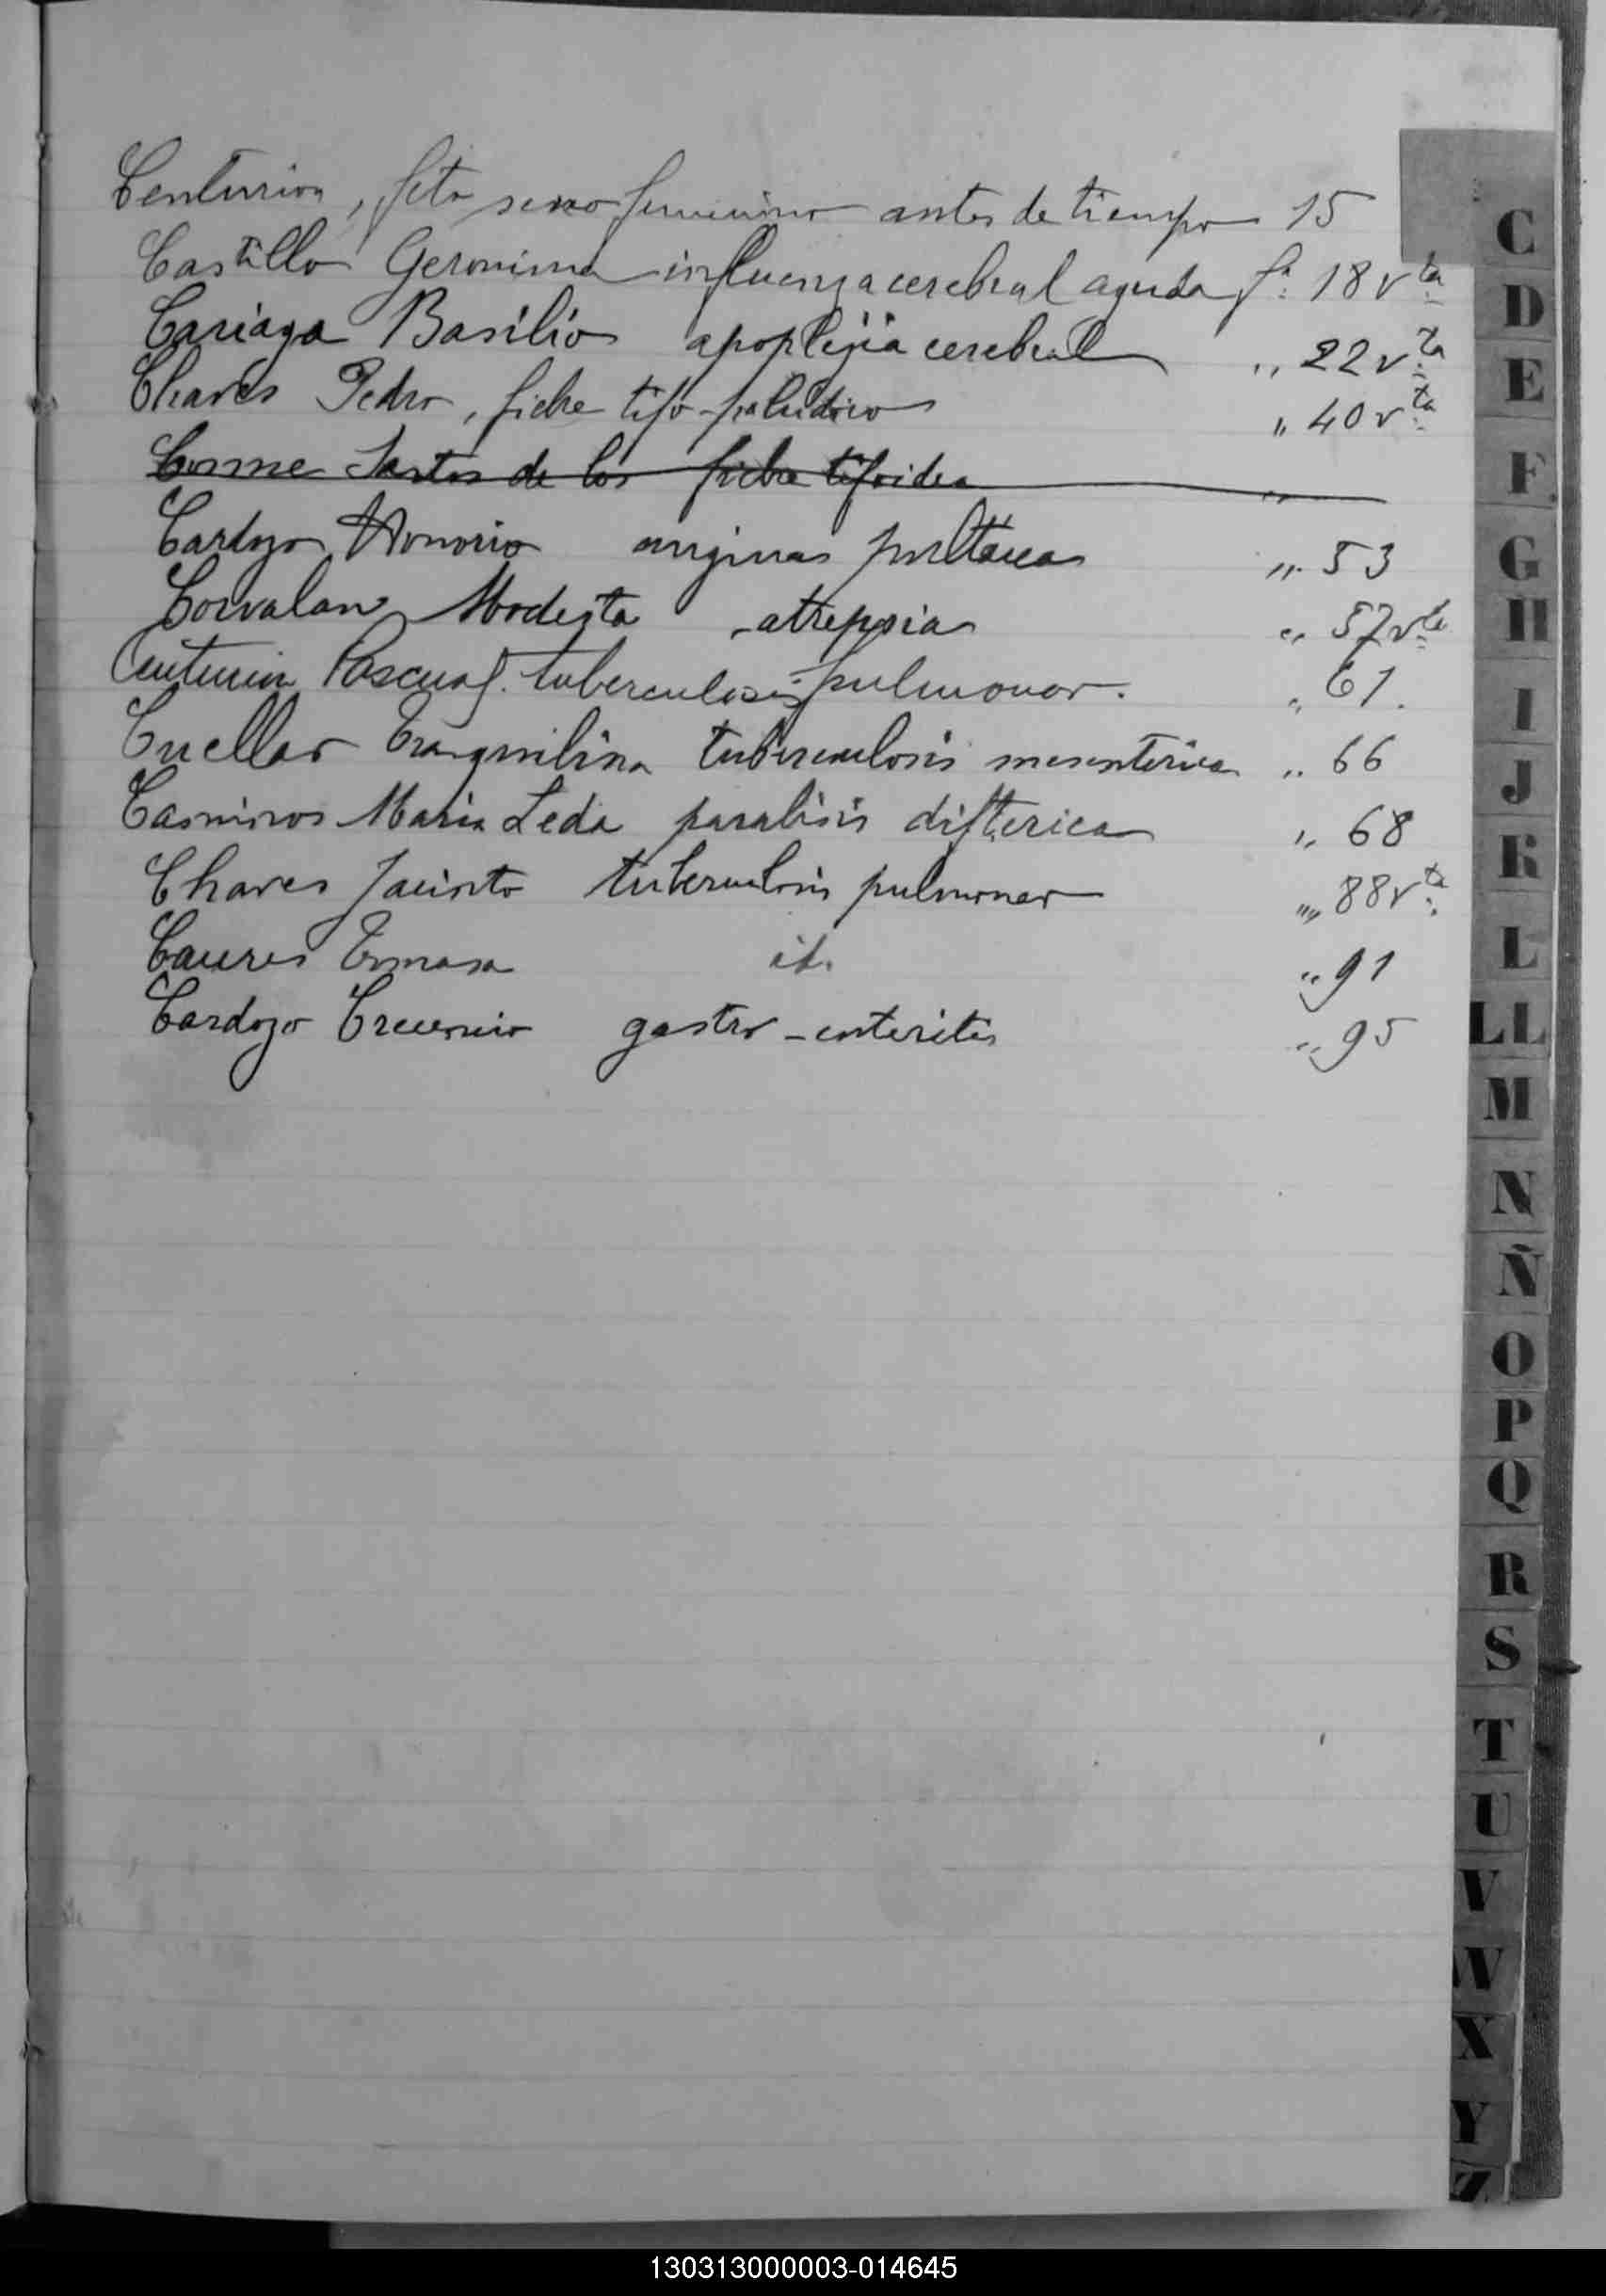 Centurion, feto sexo femenino antes de tiempo 15
Castillo Geronima influenza cerebral aguda fª 18 vta
Cariaga Basilio apoplejia cerebral „ 22 vta
Chaves Pedro, fiebre tifo-paludico „ 40 vta
Cosme Santos de los fiebre tifoidea „
Cardozo Honorio anginas pultacea „ 53
Corvalan Modesta atrepsia „ 57 vta
Centurion Pascual. tuberculosis pulmonar. „ 61.
Cuellar Tranquilina tuberculosis mesenterica „ 66
Casmiros Maria Leda paralisis difterica „ 68
Chaves Jacinto tuberculosis pulmonar „ 88 vta
Caceres Tomasa id. „ 91
Cardozo Crecencio gastro-enteritis „ 95
C
D
E
F
G
H
I
J
K
L
LL
M
N
Ñ
O
P
Q
R
S
T
U
V
W
X
Y
Z
130313000003-014645